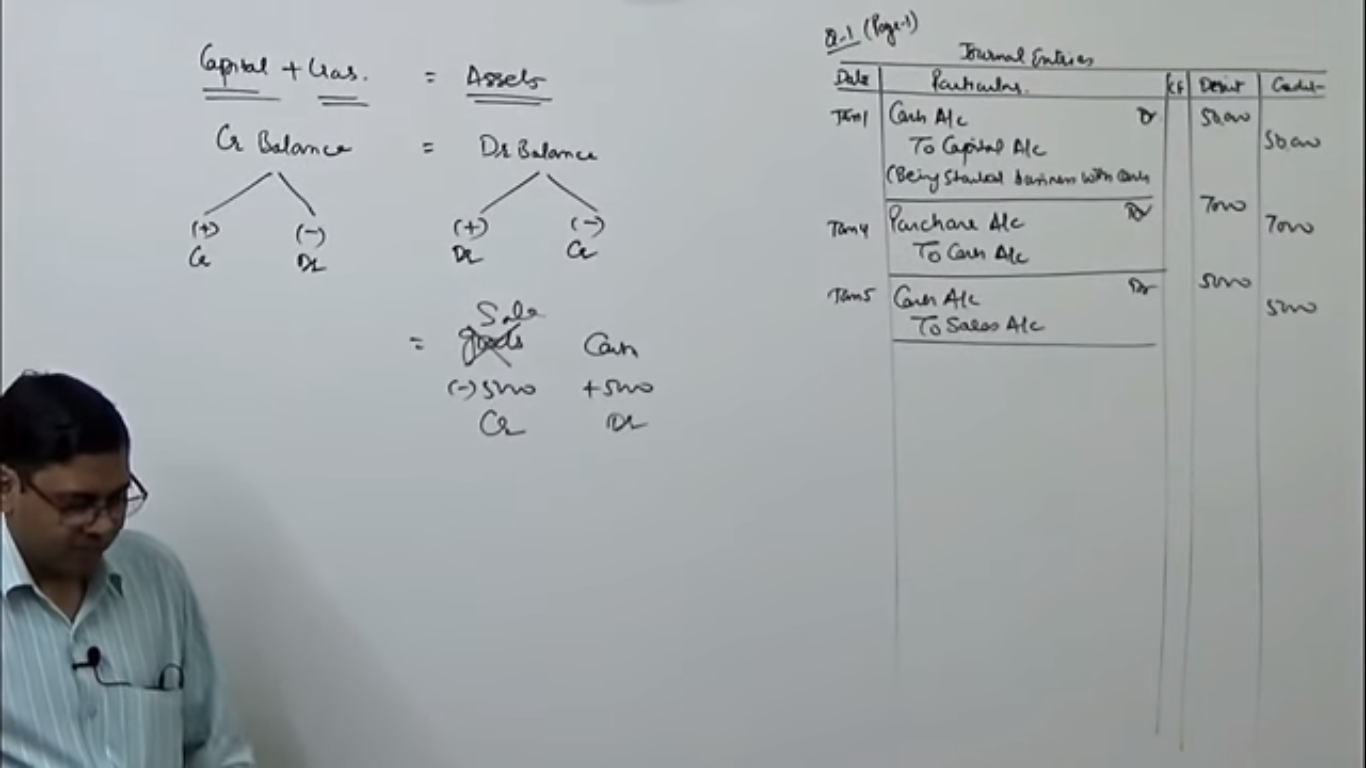 Capital + Lias. = Assets
Cr Balance = Dr Balance
(+) (-) (+) (-)
Cr Dr Dr Cr
Sale
= goods Cash
(-) 5000 +5000
Cr Dr
Q-1 (Page-1)
Journal Entries
Date Particulars. LF Debit Credit
Jan 1 Cash A/c Dr 50,000
To Capital A/c 50,000
(Being Started business with Cash
Jan 4 Purchase A/c Dr 7000
To Cash A/c 7000
Jan 5 Cash A/c Dr 5000
To Sales A/c 5000